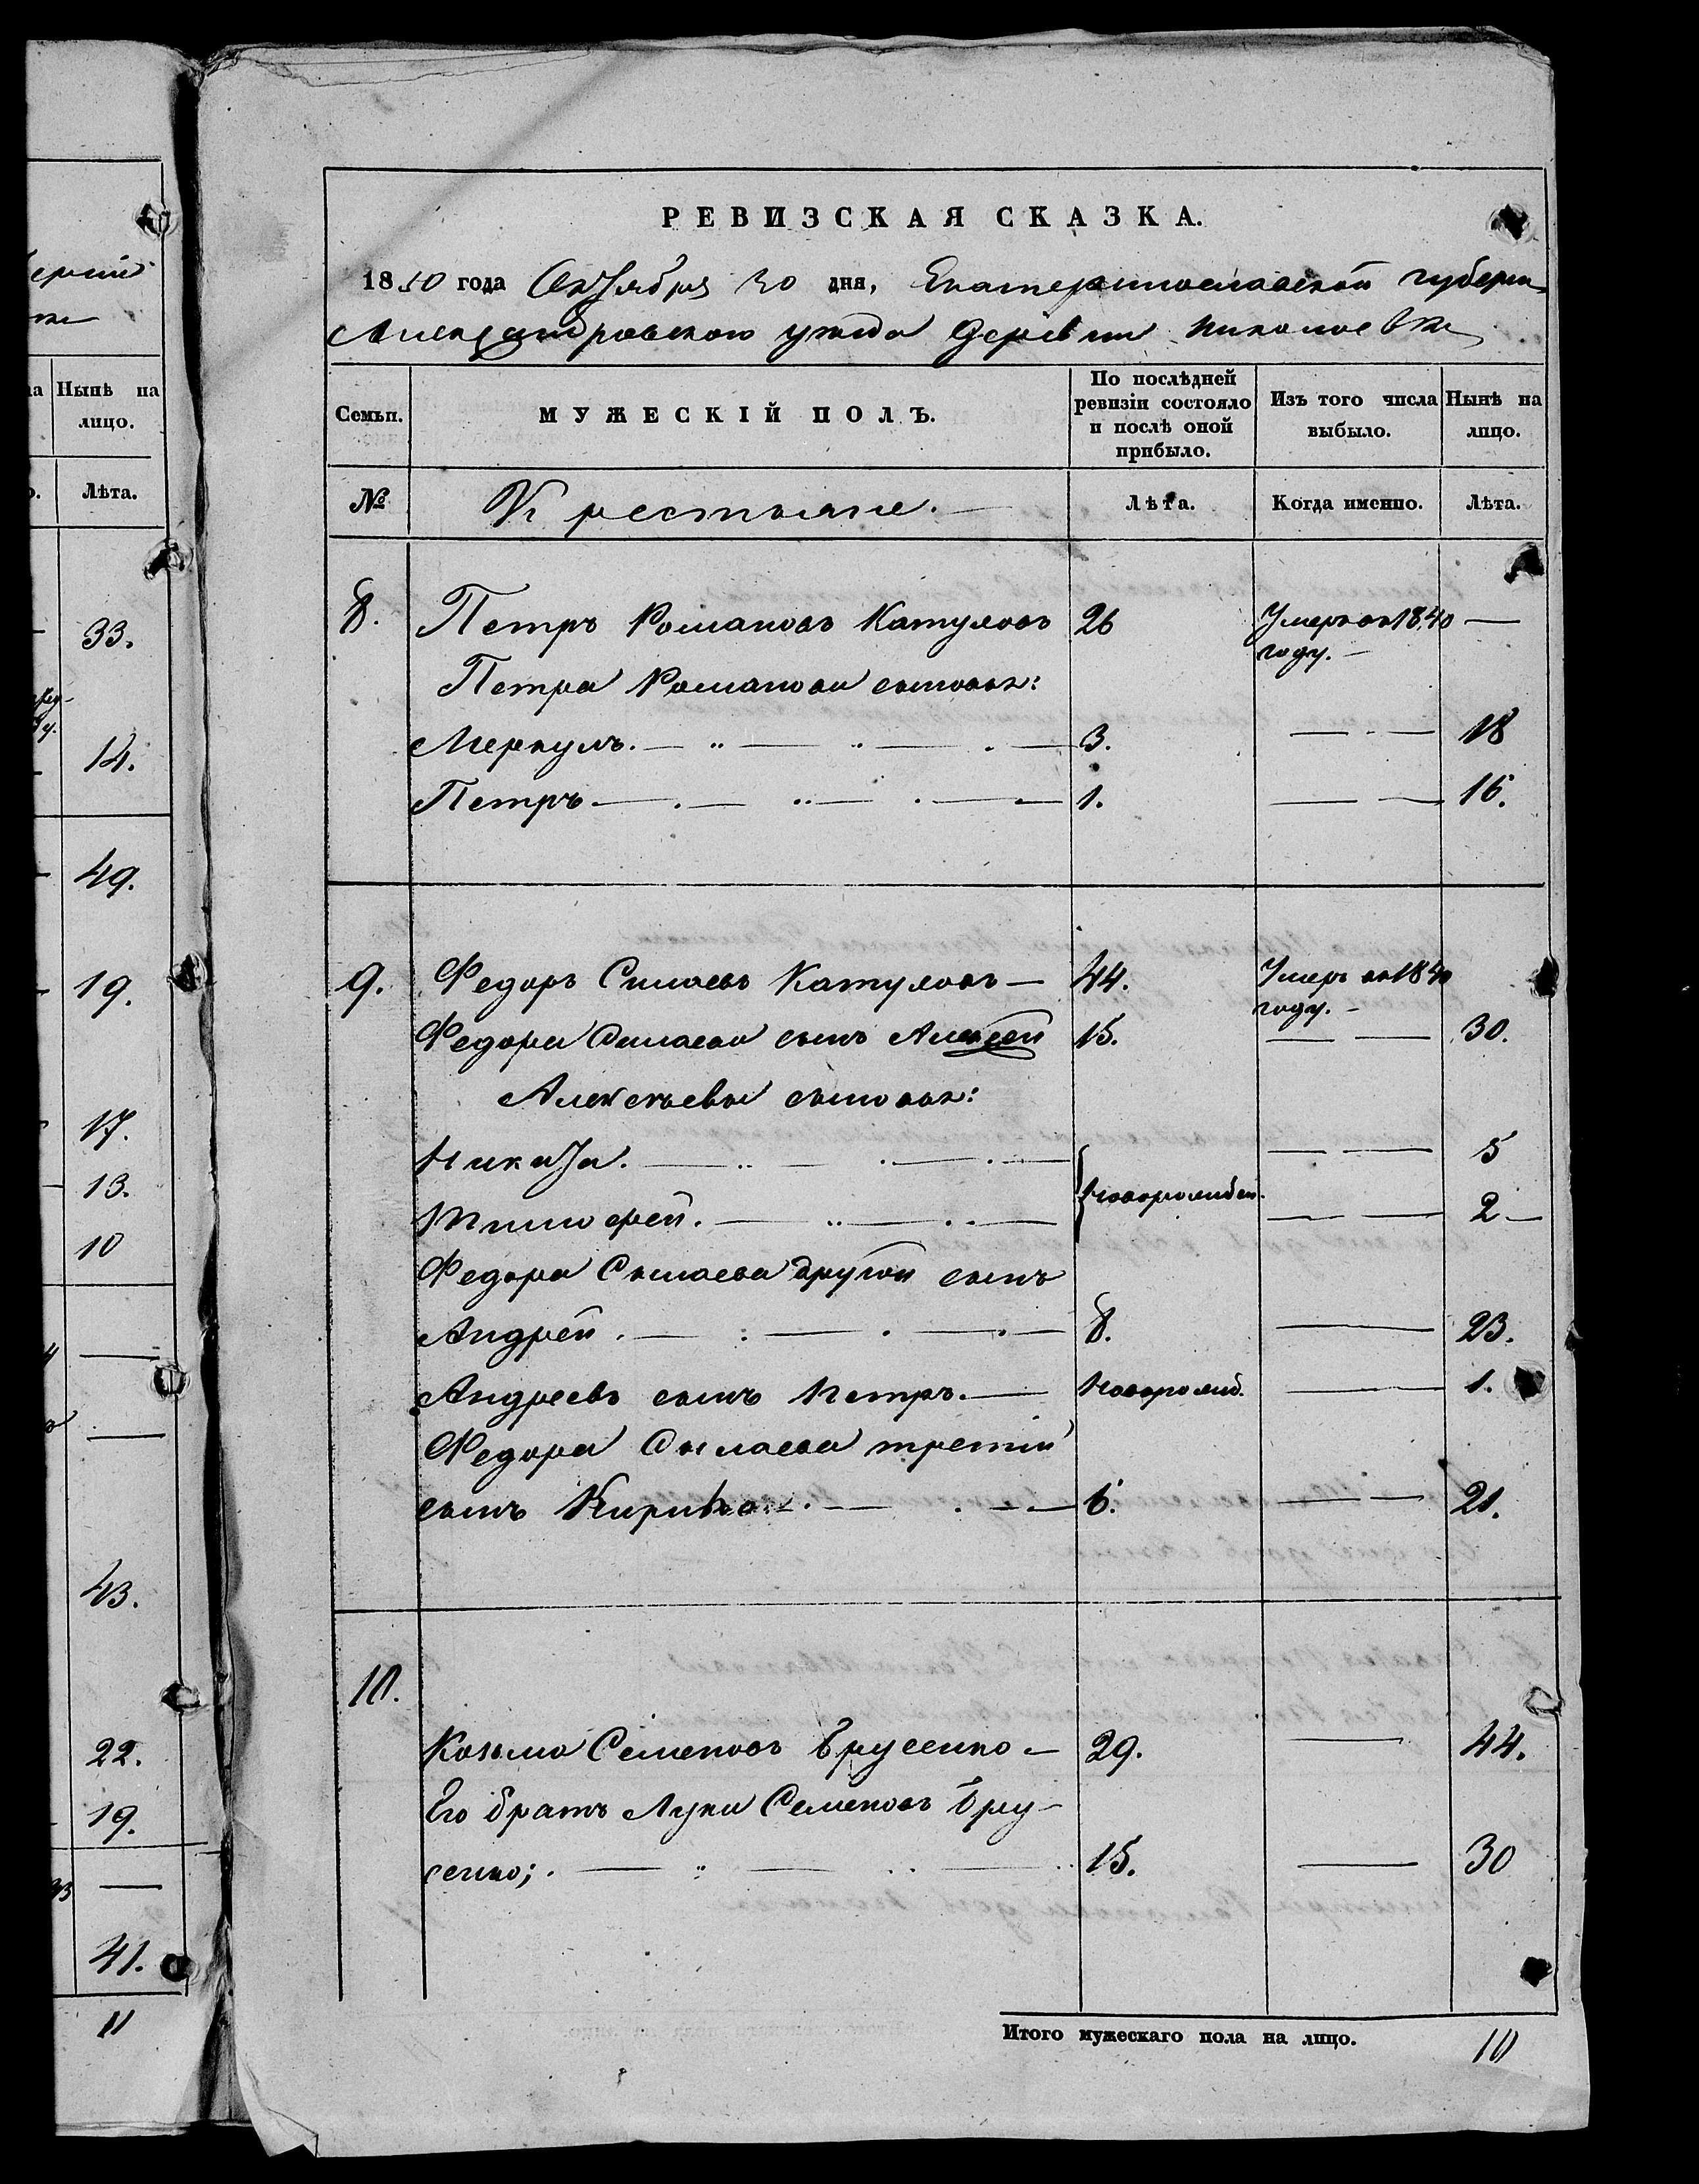 ерніи
Нынѣ на
лицо.
Лѣта.
33.
14.
49.
19.
17.
13.
10
43.
22.
19.
41.
11
РЕВИЗСКАЯ СКАЗКА.
1850 года Октября 30 дня, Екатеринославской губерніи
Александровского уезда деревни Николаевки
Семьи.
МУЖЕСКІЙ ПОЛЪ.
По послѣдней ревизіи состояло и послѣ оной прибыло.
Изъ того числа выбыло.
Нынѣ на лицо.
№
Крестьяне.
Лѣта.
Когда именно.
Лѣта.
8. Петръ Романовъ Катуловъ 26 Умеръ въ 1840 году. —
Петра Романова сыновья:
Меркулъ. 3. — 18
Петръ 1. — 16.
9. Федоръ Силаевъ Катуловъ — 44. Умеръ въ 1840 году. —
Федора Силаева сынъ Алексей 15. — 30.
Алексѣевы сыновья:
Никита. — 5
Новорожден.
Тимофей. — 2 —
Федора Силаева другой сынъ
Андрей. 8. — 23.
Андреевъ сынъ Петръ. — Новорожд. — 1.
Федора Силаева третій
сынъ 6. — 21.
10.
Козьма Семеновъ Брусенко — 29. — 44.
Его братъ Лука Семеновъ Бру-
сенко; 15. — 30
Итого мужескаго пола на лицо. 10